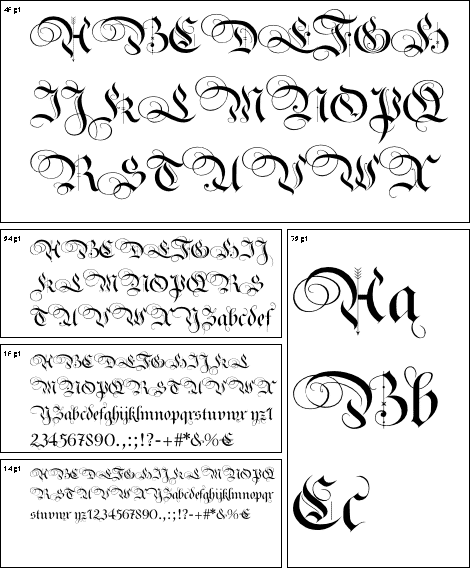 48 pt
ABCDEFGH
IJKLMNOPQ
RSTUVWX
24 pt
ABCDEFGHIJ
KLMNOPQRS
TUVWXYZabcdef
18 pt
ABCDEFGHIJKL
MNOPQRSTUVWX
YZabcdefghijklmnopqrstuvwxyz1
234567890.,:;!?-+#*&%€
14 pt
ABCDEFGHIJKLMNOPQ
RSTUVWXYZabcdefghijklmnopqr
stuvwxyz1234567890.,:;!?-+#*&%€
72 pt
Aa
Bb
Cc